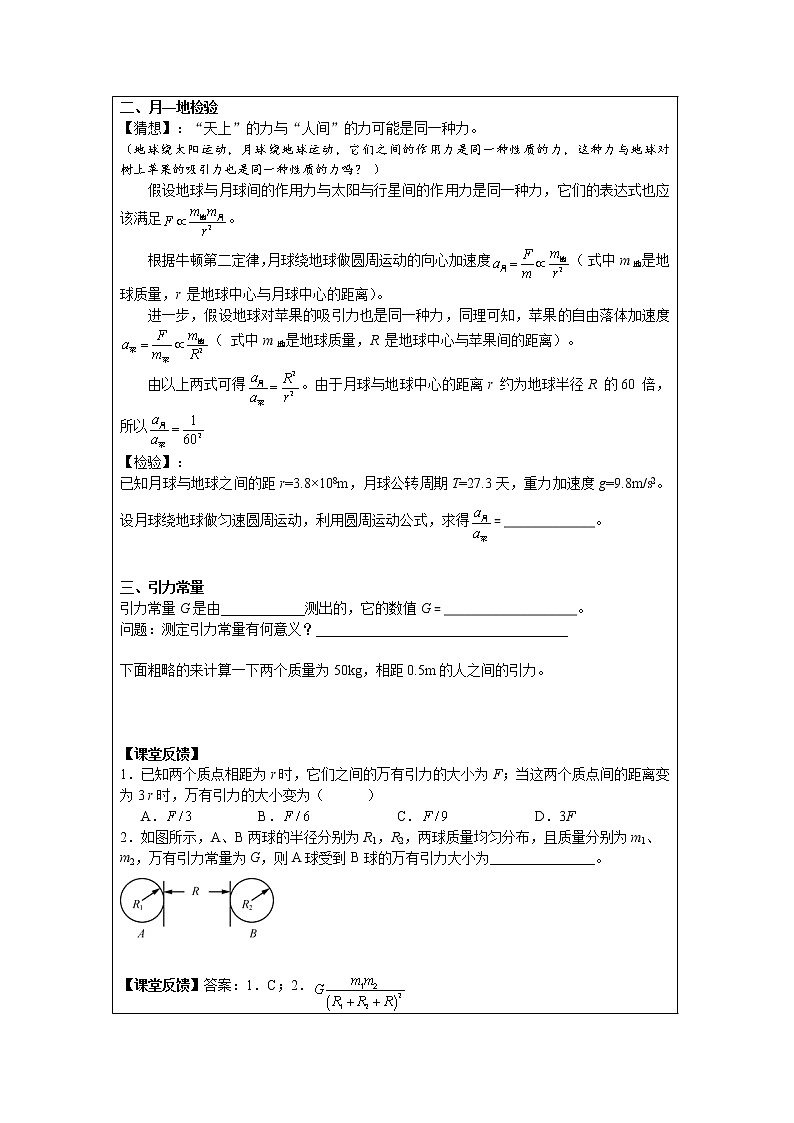 二、月—地检验
【猜想】：“天上”的力与“人间”的力可能是同一种力。
（地球绕太阳运动，月球绕地球运动，它们之间的作用力是同一种性质的力，这种力与地球对
树上苹果的吸引力也是同一种性质的力吗？）
假设地球与月球间的作用力与太阳与行星间的作用力是同一种力，它们的表达式也应
该满足 F∝m地m月/r²。
根据牛顿第二定律，月球绕地球做圆周运动的向心加速度 a月=F/m∝m地/r²（ 式中 m 地是地
球质量，r 是地球中心与月球中心的距离）。
进一步，假设地球对苹果的吸引力也是同一种力，同理可知，苹果的自由落体加速度
a苹=F/m苹∝m地/R²（ 式中 m 地是地球质量，R 是地球中心与苹果间的距离）。
由以上两式可得 a月/a苹=R²/r²。由于月球与地球中心的距离 r 约为地球半径 R 的 60 倍，
所以 a月/a苹=1/60²
【检验】：
已知月球与地球之间的距 r=3.8×10⁸m，月球公转周期 T=27.3 天，重力加速度 g=9.8m/s²。
设月球绕地球做匀速圆周运动，利用圆周运动公式，求得 a月/a苹=_____________。
三、引力常量
引力常量 G 是由____________测出的，它的数值 G＝___________________。
问题：测定引力常量有何意义？____________________________________
下面粗略的来计算一下两个质量为 50kg，相距 0.5m 的人之间的引力。
【课堂反馈】
1．已知两个质点相距为 r 时，它们之间的万有引力的大小为 F；当这两个质点间的距离变
为 3 r 时，万有引力的大小变为（ ）
A．F / 3 B．F / 6 C．F / 9 D．3F
2．如图所示，A、B 两球的半径分别为 R₁，R₂，两球质量均匀分布，且质量分别为 m₁、
m₂，万有引力常量为 G，则 A 球受到 B 球的万有引力大小为_______________。
R₁ R R₂
A B
【课堂反馈】答案：1．C；2．G m₁m₂/(R₁+R₂+R)²